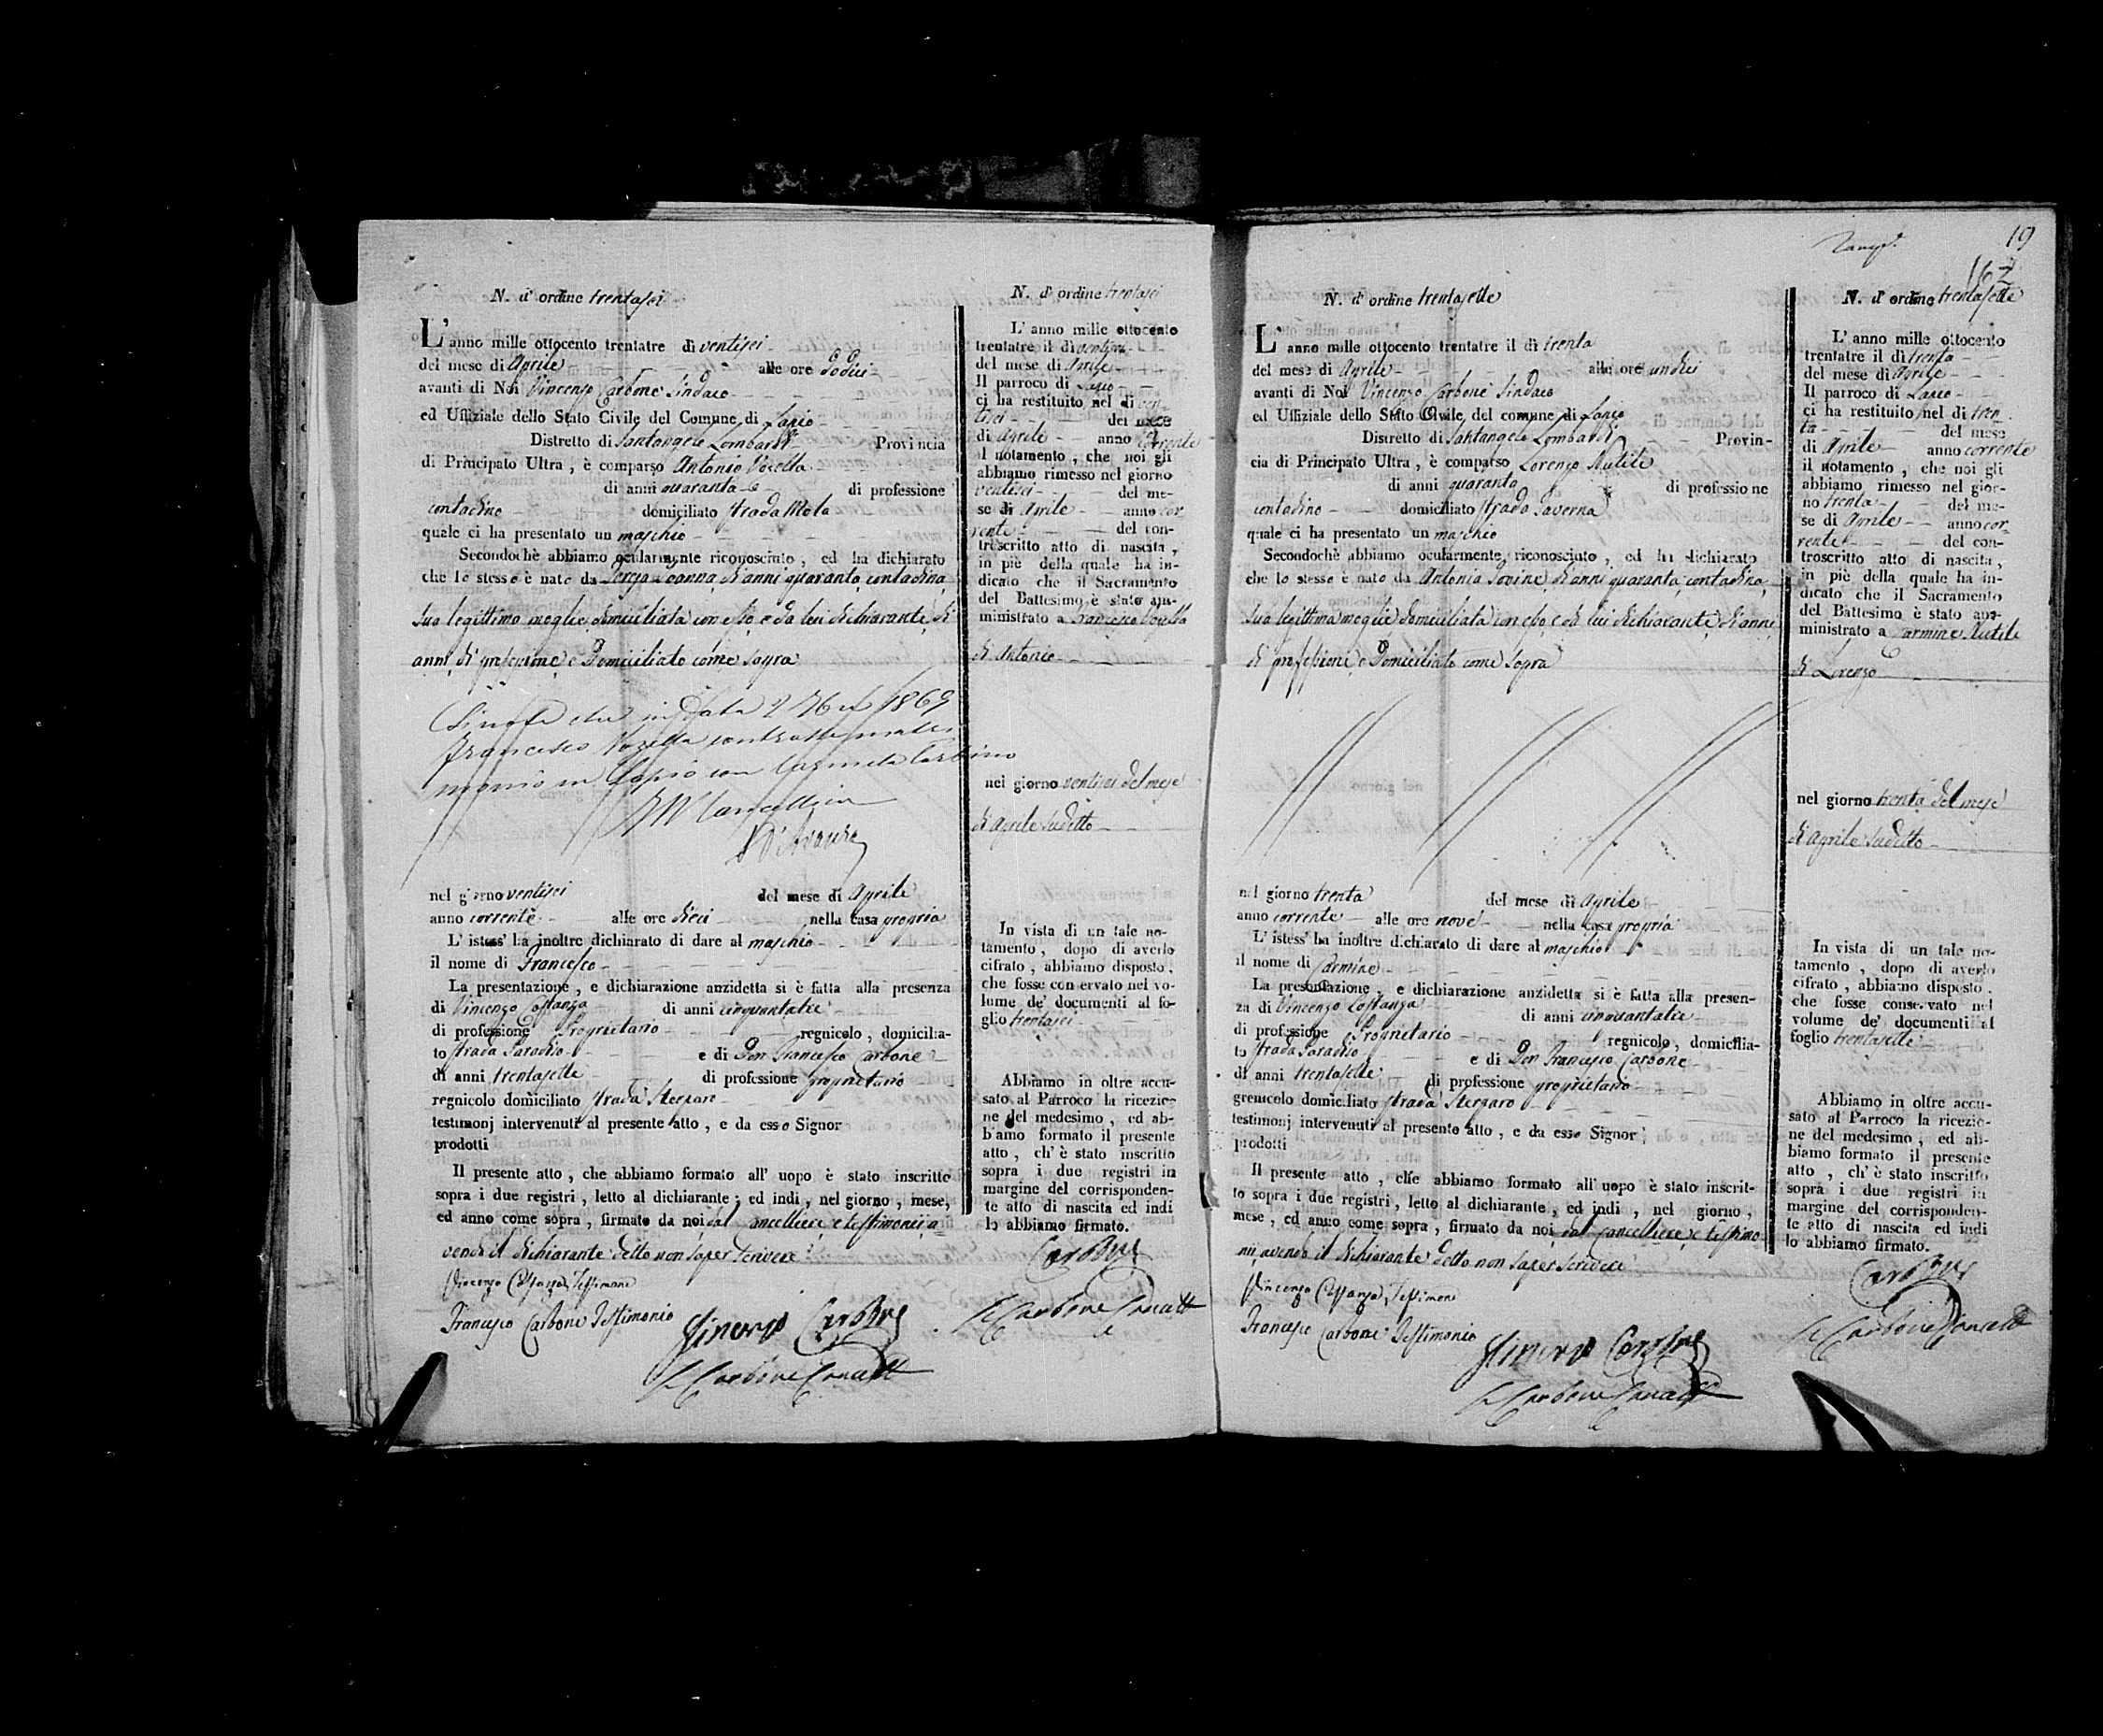 N. d' ordine trentasei
L' anno mille ottocento trentatre di ventisei
del mese di Aprile alle ore dodici
avanti di Noi Vincenzo Carbone Sindaco
ed Uffiziale dello Stato Civile del Comune di Lapio
Distretto di Santangelo Lombardi Provincia
di Principato Ultra , è comparso Antonio Vozella
di anni quaranta di professione
contadino domiciliato strada Mola
quale ci ha presentato un maschio
Secondochè abbiamo ocularmente riconosciuto , ed ha dichiarato
che lo stesso è nato da di anni quaranta, contadina
sua legittima moglie domiciliata con esso e da lui dichiarante di
anni di professione e Domiciliato come sopra
in data 1869
Francesco Vozella contrasse matri
monio in Lapio con Carmela
nel giorno ventisei del mese di Aprile
anno corrente alle ore dieci nella casa propria
L' istess' ha inoltre dichiarato di dare al maschio
il nome di Francesco
La presentazione , e dichiarazione anzidetta si è fatta alla presenza
di Vincenzo Costanza di anni cinquantatre
di professione Proprietario regnicolo , domicilia-
to strada Paradiso e di Don Francesco Carbone
di anni trentasette di professione proprietario
regnicolo domiciliato strada Sterparo
testimonj intervenuti al presente atto , e da esso Signor
prodotti
Il presente atto , che abbiamo formato all' uopo è stato inscritto
sopra i due registri , letto al dichiarante ; ed indi , nel giorno , mese,
ed anno come sopra , firmato da noi dal cancelliere, e testimonii a
vendo il dichiarante detto non saper scrivere
Vincenzo Costanza Testimone
Francesco Carbone Testimonio Vincenzo Carbone
Carbone Cancell
N. d' ordine trentasei
L' anno mille ottocento
trentatre il di ventisei
del mese di Aprile
Il parroco di Lapio
ci ha restituito nel di ven
tisei del mese
di Aprile anno corrente
il notamento , che noi gli
abbiamo rimesso nel giorno
ventisei del me-
se di Aprile anno cor
rente del con-
troscritto atto di nascita ,
in piè della quale ha in-
dicato che il Sacramento
del Battesimo è stato am-
ministrato a Francesco Vozella
di Antonio
nel giorno ventisei del mese
di Aprile sudetto
In vista di un tale no-
tamento , dopo di averlo
cifrato , abbiamo disposto,
che fosse conservato nel vo-
lume de' documenti al fo-
glio trentasei
Abbiamo in oltre accu-
sato al Parroco la ricezio-
ne del medesimo , ed ab-
biamo formato il presente
atto , ch' è stato inscritto
sopra i due registri in
margine del corrisponden-
te atto di nascita ed indi
lo abbiamo firmato.
Carbone
Carbone Cancell
19
N. d' ordine trentasette
L' anno mille ottocento trentatre il di trenta
del mese di Aprile alle ore undici
avanti di Noi Vincenzo Carbone Sindaco
ed Uffiziale dello Stato Civile del comune di Lapio
Distretto di Santangelo Lombardi Provin-
cia di Principato Ultra , è comparso Lorenzo Nutile
di anni quaranta di professione
contadino domiciliato strada Taverna
quale ci ha presentato un maschio
Secondochè abbiamo ocularmente riconosciuto , ed ha dichiarato
che lo stesso è nato da Antonia Iovine di anni quaranta, contadina
sua legittima moglie domiciliata con esso, e da lui dichiarante di anni
di professione e Domiciliato come sopra
nel giorno trenta del mese di Aprile
anno corrente alle ore nove nella casa propria
L' istess' ha inoltre dichiarato di dare al maschio
il nome di Carmine
La presentazione , e dichiarazione anzidetta si è fatta alla presen-
za di Vincenzo Costanza di anni cinquantatre
di professione Proprietario regnicolo , domicilia-
to strada Paradiso e di Don Francesco Carbone
di anni trentasette di professione proprietario
gremcolo domiciliato strada Sterparo
testimonj intervenuti al presente atto , e da esso Signor
prodotti
Il presente atto , che abbiamo formato all' uopo è stato inscrit-
to sopra i due registri , letto al dichiarante , ed indi , nel giorno ,
mese , ed anno come sopra , firmato da noi dal Cancelliere, e testimo
nii avendo il dichiarante detto non saper scrivere
Vincenzo Costanza Testimone
Francesco Carbone Testimonio Vincenzo Carbone
Carbone Cancell
N. d' ordine trentasette
L' anno mille ottocento
trentatre il di trenta
del mese di Aprile
Il parroco di Lapio
ci ha restituito nel di tren
ta del mese
di Aprile anno corrente
il notamento , che noi gli
abbiamo rimesso nel gior-
no trenta del me-
se di Aprile anno cor-
rente del con-
troscritto atto di nascita ,
in piè della quale ha in-
dicato che il Sacramento
del Battesimo è stato am-
ministrato a Carmine Nutile
di Lorenzo
nel giorno trenta del mese
di Aprile sudetto
In vista di un tale no-
tamento , dopo di averlo
cifrato , abbiamo disposto ,
che fosse conservato nel
volume de' documenti al
foglio trentasette
Abbiamo in oltre accu-
sato al Parroco la ricezio-
ne del medesimo , ed ab-
biamo formato il presente
atto , ch' è stato inscritto
sopra i due registri in
margine del corrisponden-
te atto di nascita ed indi
lo abbiamo firmato.
Carbone
Carbone Cancell